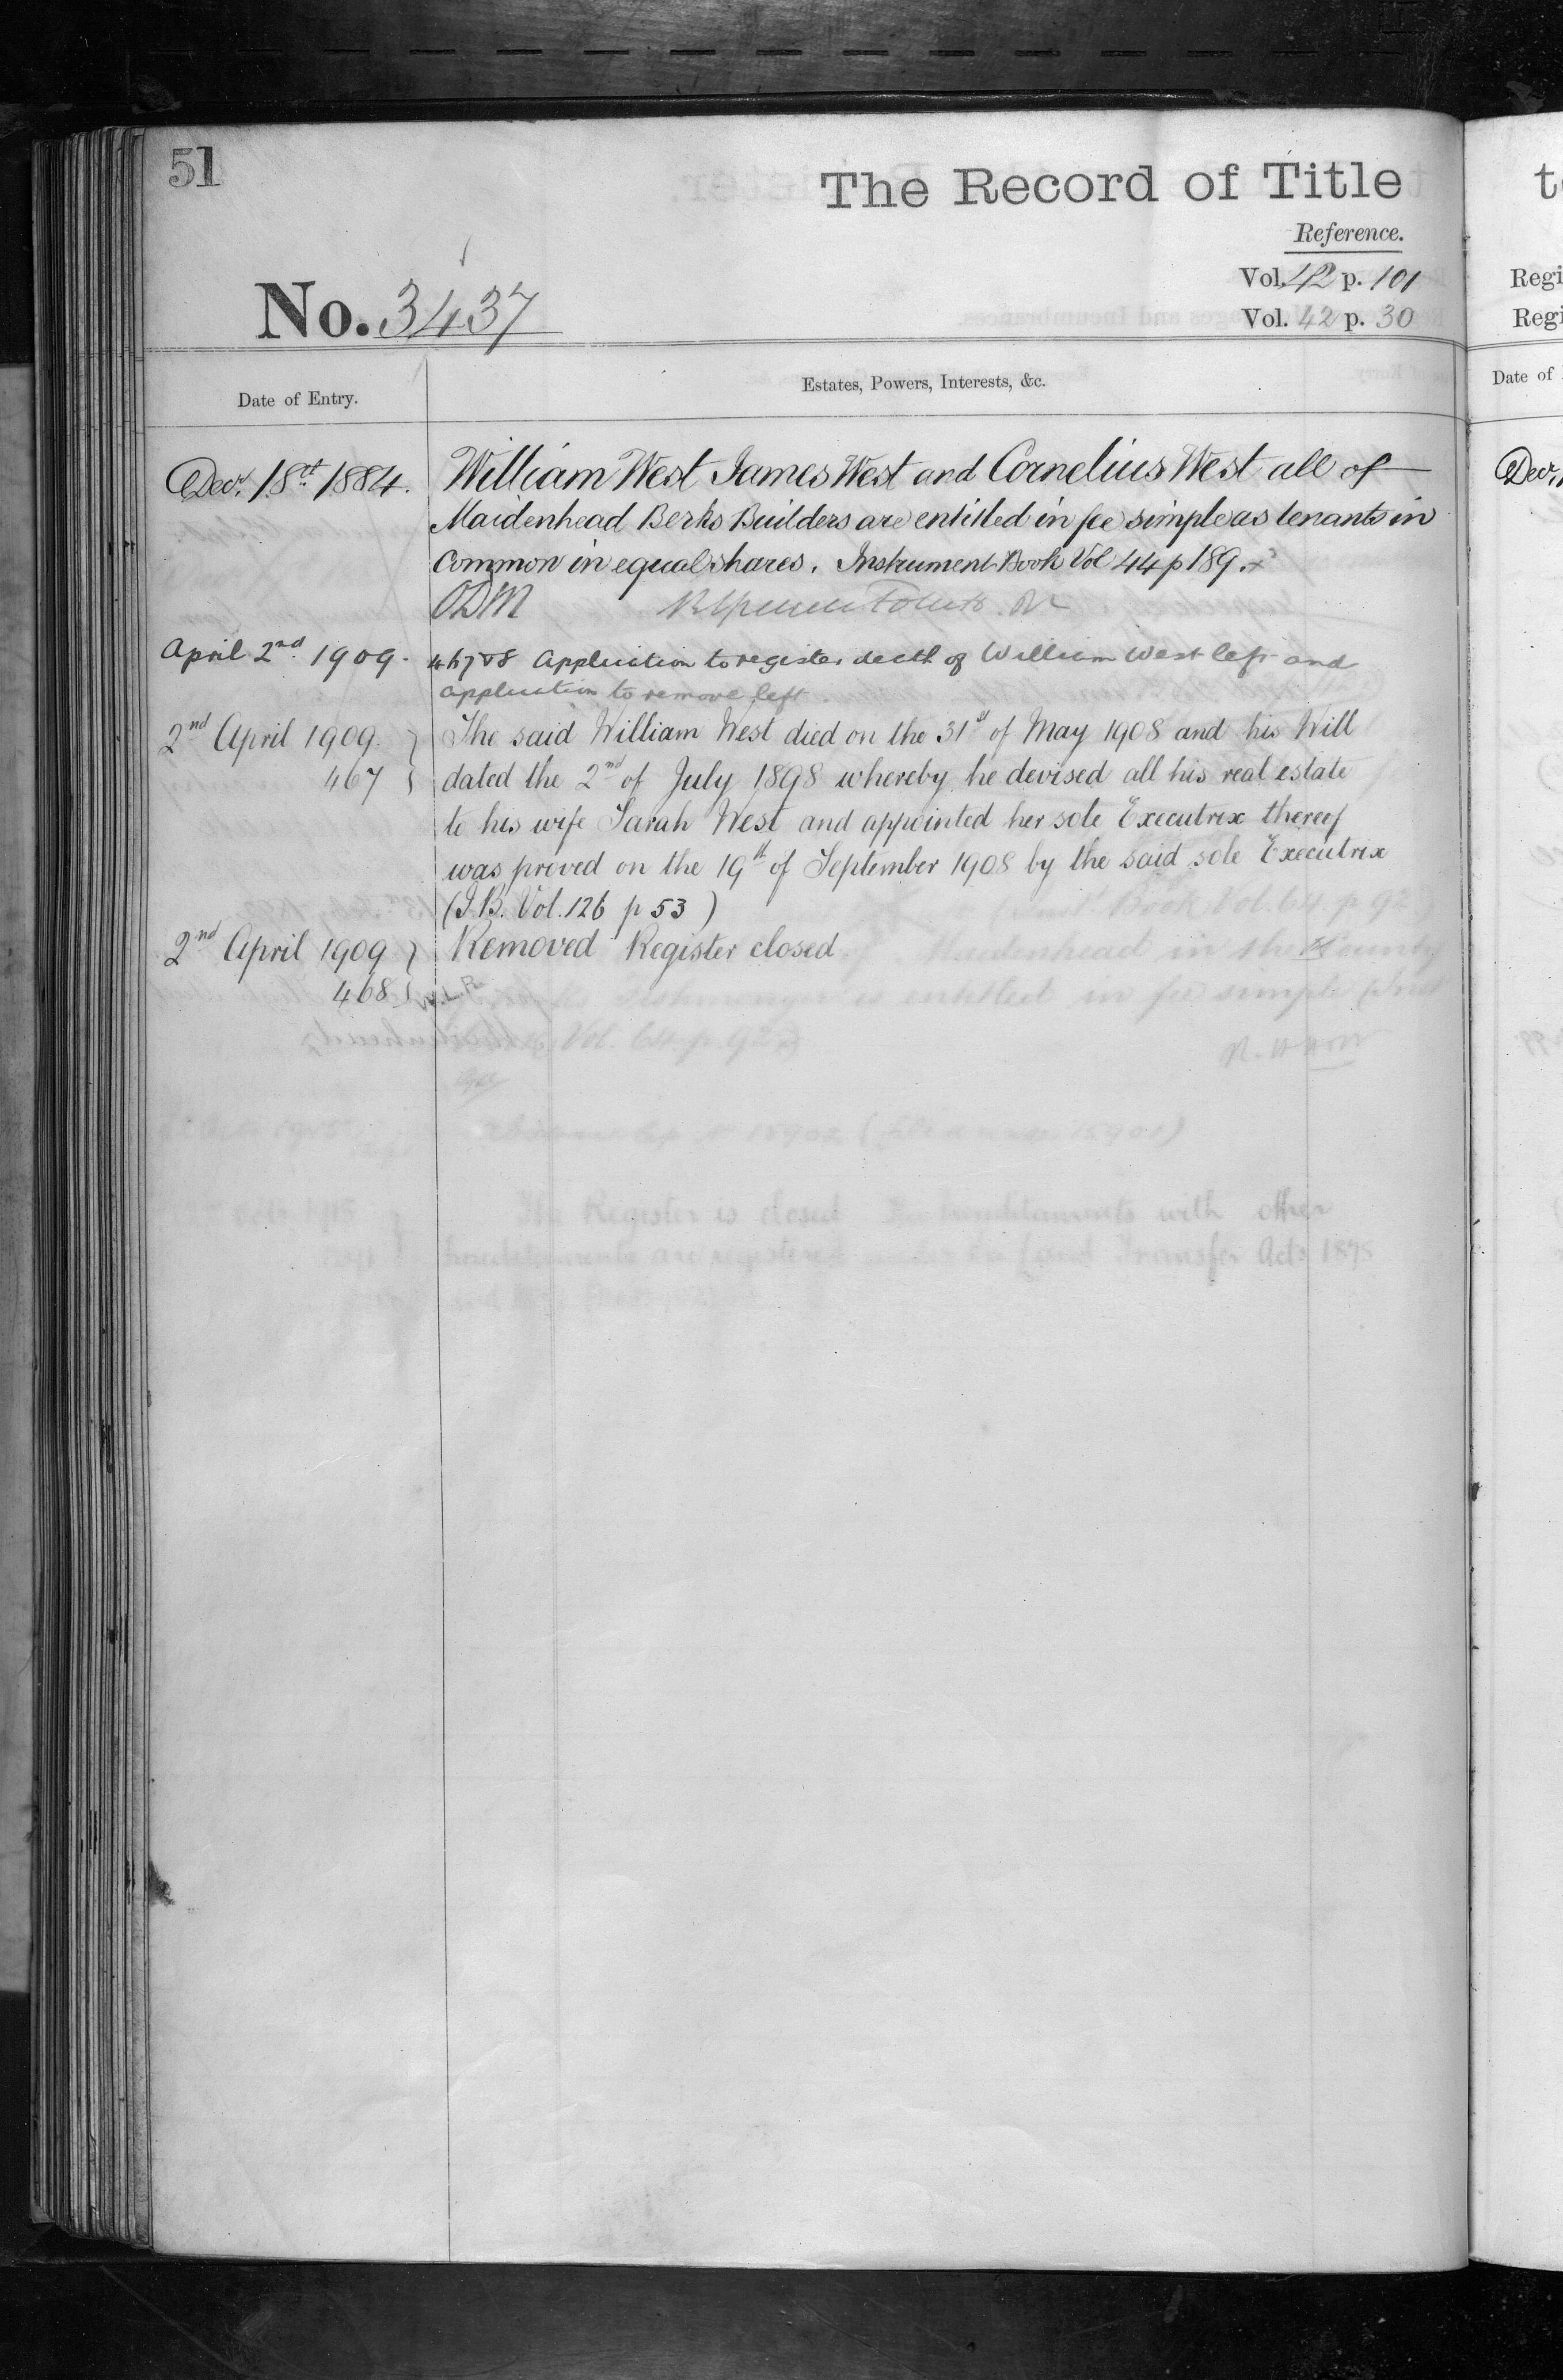 51
The Record of Title
Reference.
Vol. 42 p. 101
No. 3437
Vol. 42 p. 30
Date of Entry.
Estates, Powers, Interests, &c.
Decr. 18th 1884. William West James West and Cornelius West all of
Maidenhead Berks Builders are entitled in fee simple as tenants in
Common in equal shares. Instrument Book Vol 44 p 189.
ODM
April 2nd 1909. 467 & 8 Application to register death of William West left and
application to remove left.
2nd April 1909. The said William West died on the 31st of May 1908 and his Will
467 dated the 2nd of July 1898 whereby he devised all his real estate
to his wife Sarah West and appointed her sole Executrix thereof
was proved on the 19th of September 1908 by the said sole Executrix
(I.B. Vol. 126 p 53)
2nd April 1909 Removed Register closed
468
t
Regi
Regi
Date of
Decr.